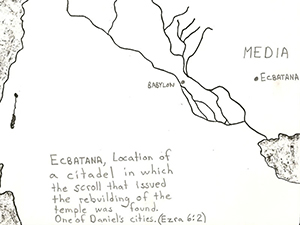 MEDIA
ECBATANA
BABYLON
ECBATANA, Location of
a citadel in which
the scroll that issued
the rebuilding of the
temple was found.
One of Daniel's cities. (Ezra 6:2)